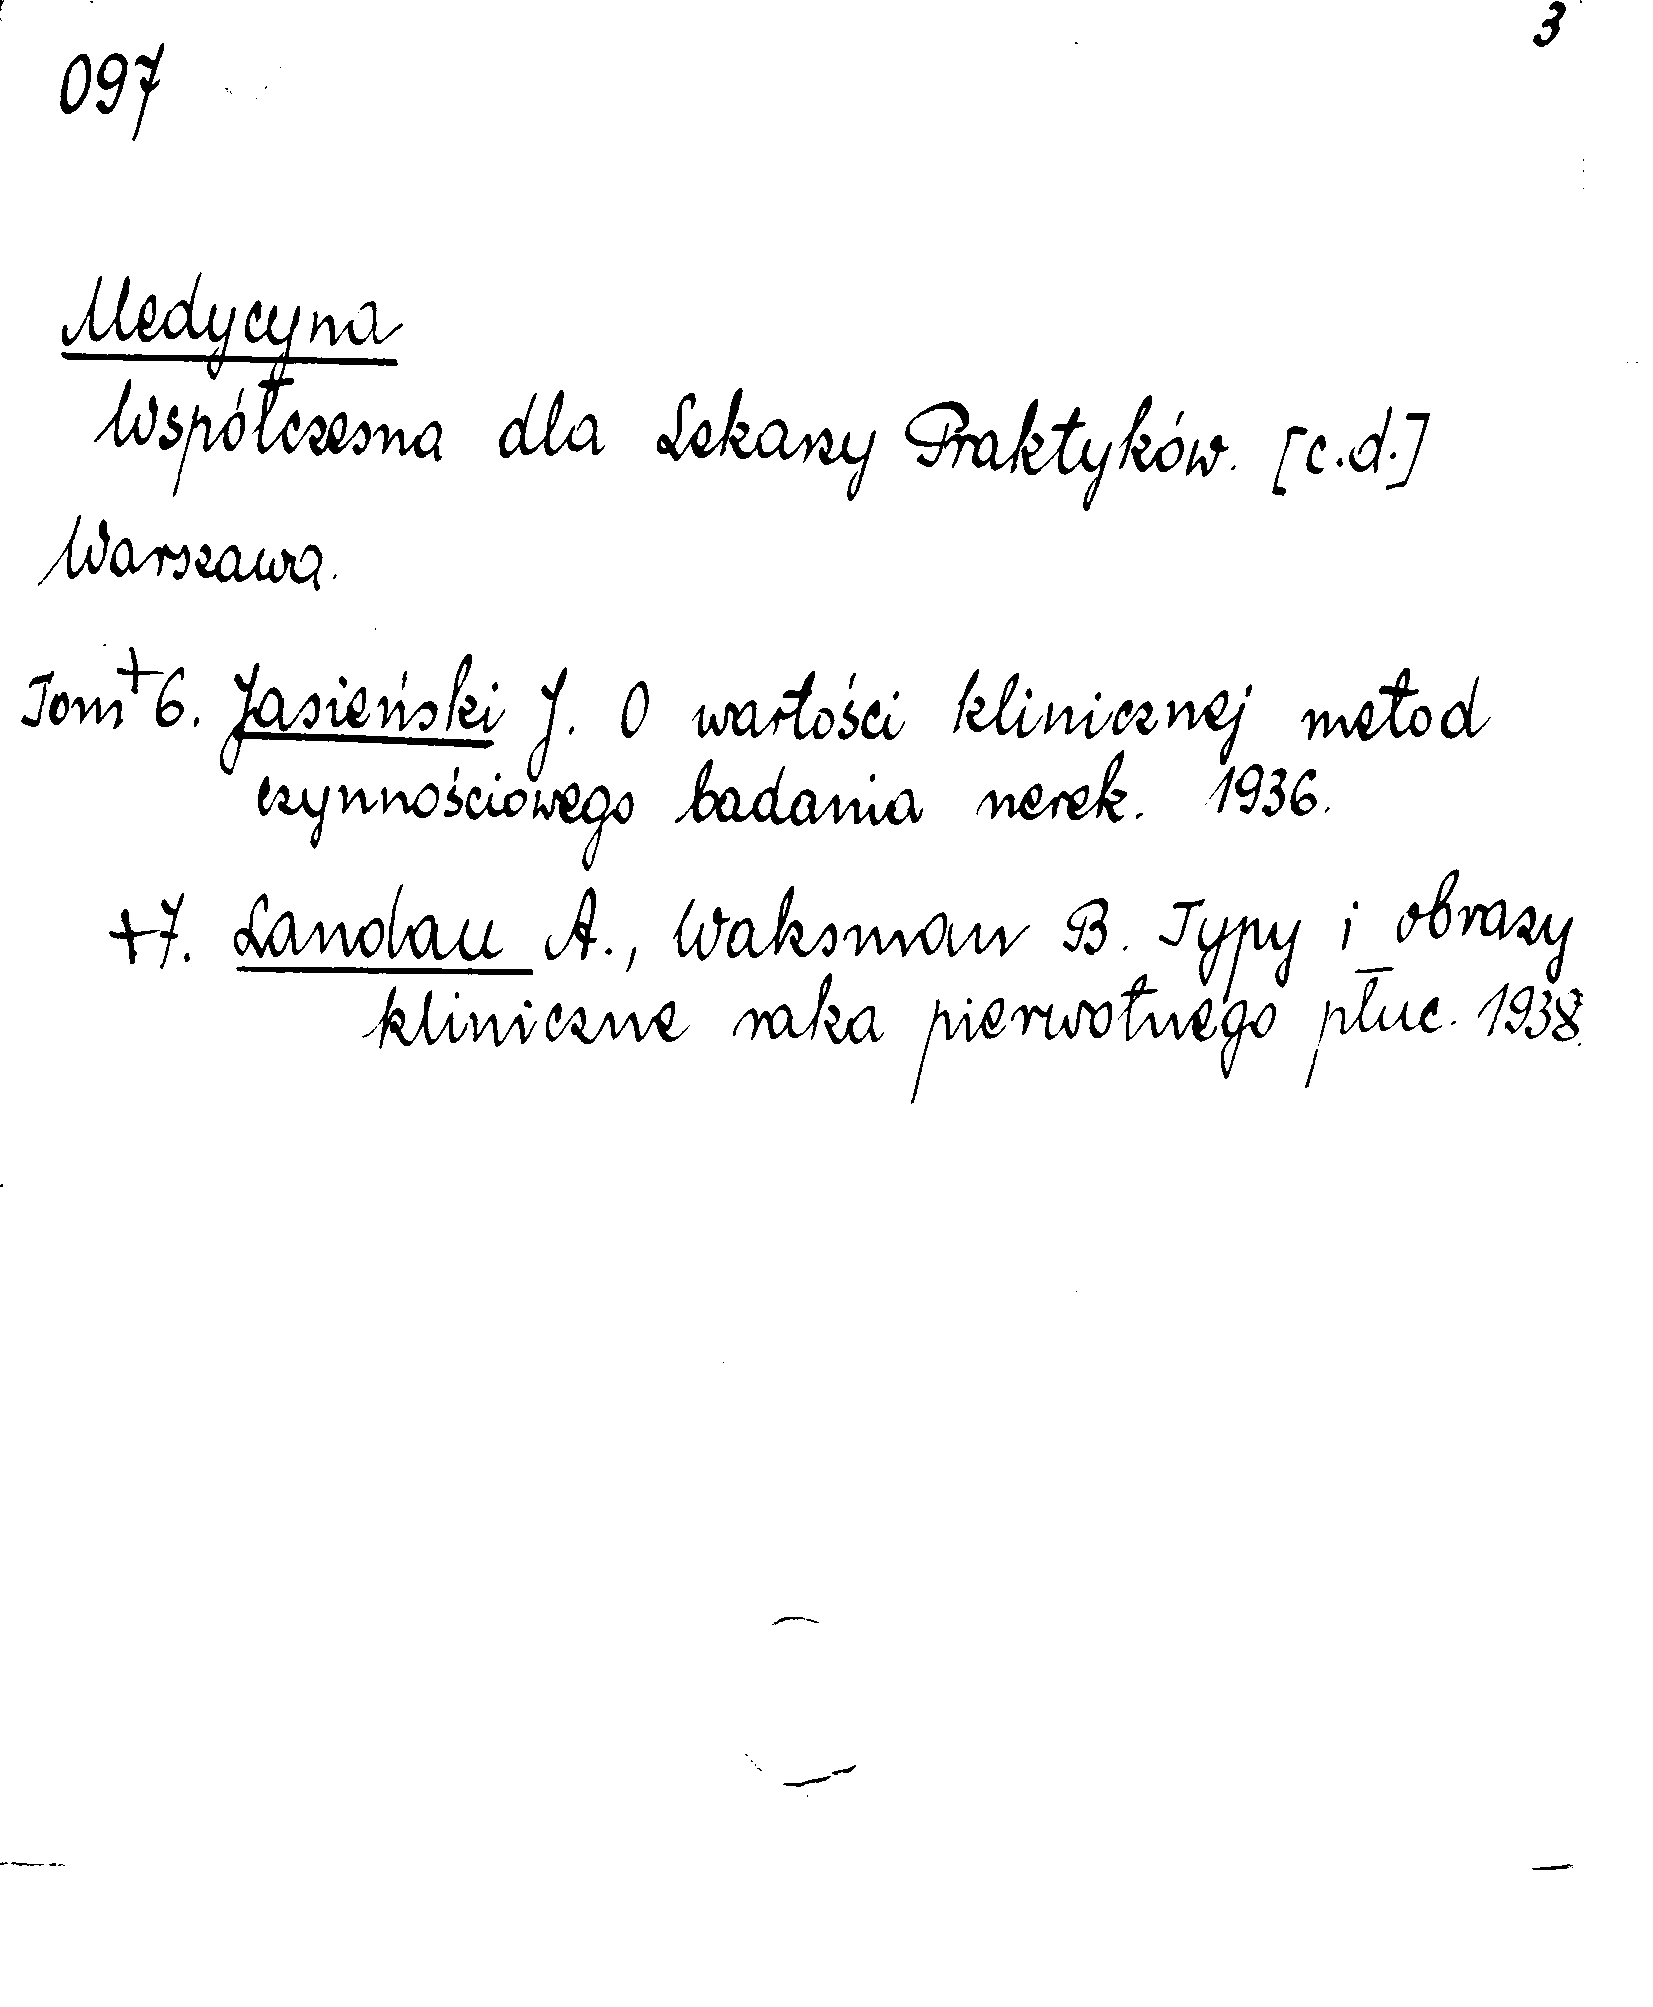 3
097
Medycyna
Współczesna dla Lekarzy Praktyków. [c.d.]
Warszawa.
Tom +6. Jasieński J. O wartości klinicznej metod
czynnościowego badania nerek. 1936.
+7. Landau A., Waksman B. Typy i obrazy
kliniczne raka pierwotnego płuc. 1938.